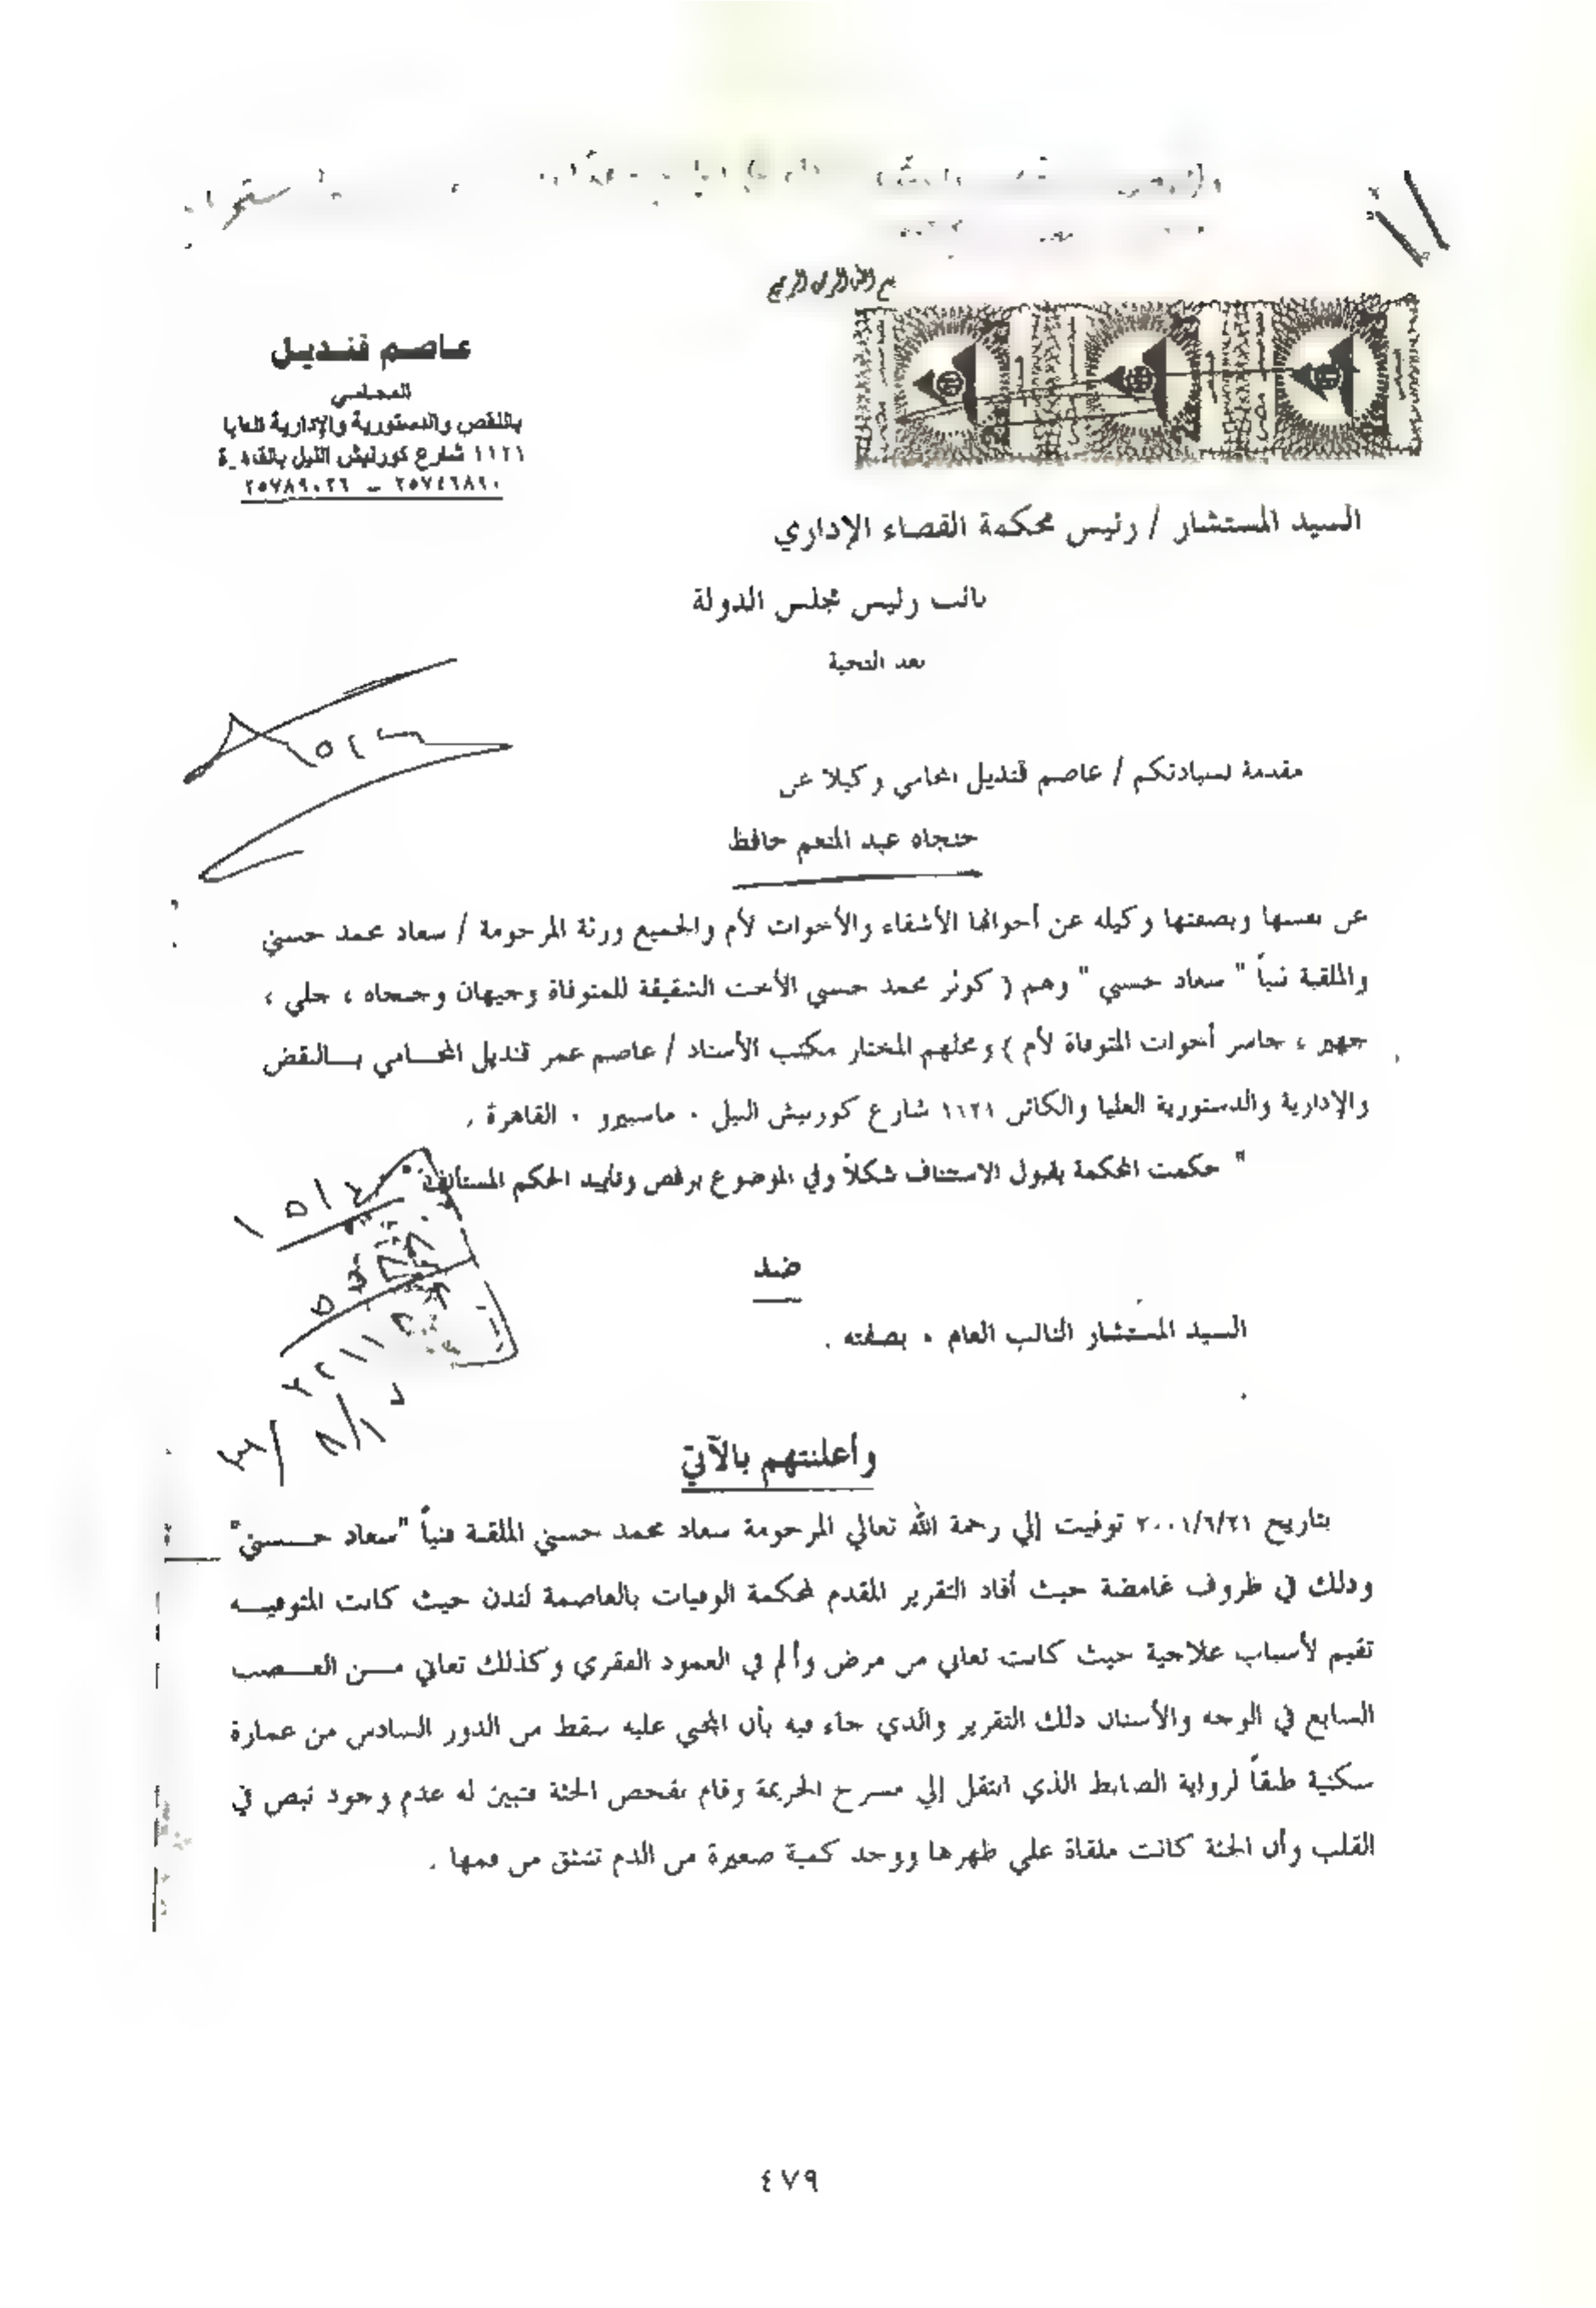 بسم الله الرحمن الرحيم
عاصم قنديل
المحامي
بالنقض والدستورية والإدارية العليا
١١٢١ شارع كورنيش النيل بالقاهرة
٢٥٧٤٦٨٩٠ – ٢٥٧٨٩٠٢٦
السيد المستشار / رئيس محكمة القضاء الإداري
نائب رئيس مجلس الدولة
بعد التحية
مقدمة لسيادتكم / عاصم قنديل المحامي وكيلا عن
جنجاه عبد المنعم حافظ
عن نفسها وبصفتها وكيله عن أخواتها الأشقاء والأخوات لأم والجميع ورثة المرحومة / سعاد محمد حسني
والملقبة فنياً " سعاد حسني " وهم ( كوثر محمد حسني الأخت الشقيقة للمتوفاة وجيهان وجنجاه ، جلي ،
جهير ، جاسر أخوات المتوفاة لأم ) ومحلهم المختار مكتب الأستاذ / عاصم عمر قنديل المحـــامي بـــالنقض
والإدارية والدستورية العليا والكائن ١١٢١ شارع كورنيش النيل - ماسبيرو - القاهرة .
" حكمت المحكمة بقبول الاستئناف شكلاً وفي الموضوع برفض وتأييد الحكم المستأنف "
ضد
السيد المستشار النائب العام - بصفته .
وأعلنتهم بالآتي
بتاريخ ٢٠٠١/٦/٢١ توفيت إلي رحمة الله تعالي المرحومة سعاد محمد حسني الملقبة فنياً "سعاد حـــسني"
وذلك في ظروف غامضة حيث أفاد التقرير المقدم لمحكمة الوفيات بالعاصمة لندن حيث كانت المتوفيـــه
تقيم لأسباب علاجية حيث كانت تعاني من مرض وألم في العمود الفقري وكذلك تعاني مـــن العـــصب
السابع في الوجه والأسنان ذلك التقرير والذي جاء فيه بأن المجني عليه سقط من الدور السادس من عمارة
سكنية طبقاً لرواية الضابط الذي انتقل إلي مسرح الجريمة وقام بفحص الجثة فتبين له عدم وجود نبض في
القلب وأن الجثة كانت ملقاة علي ظهرها ووجد كمية صغيرة من الدم تنبثق من فمها .
٤٧٩